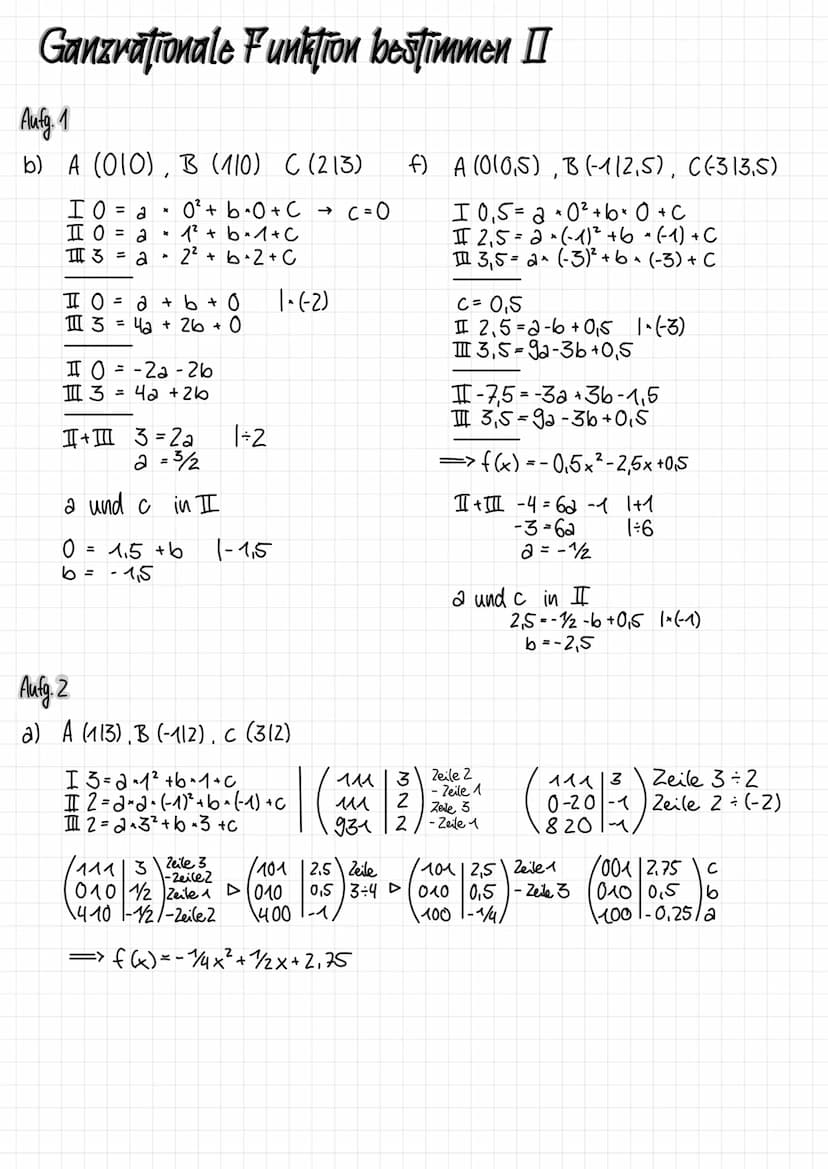 Ganzrationale Funktion bestimmen II
Aufg. 1
b) A (0|0), B (1|0) C (2|3)
I 0 = a · 0² + b·0 + c → c=0
II 0 = a · 1² + b·1+c
III 3 = a · 2² + b·2+c
II 0 = a + b + 0 |·(-2)
III 3 = 4a + 2b + 0
II 0 = -2a - 2b
III 3 = 4a + 2b
II+III 3 = 2a |÷2
a = 3/2
a und c in II
0 = 1,5 + b |-1,5
b = -1,5
f) A (0|0,5), B (-1|2,5), C(-3|3,5)
I 0,5 = a · 0² + b· 0 + c
II 2,5 = a · (-1)² + b · (-1) + c
III 3,5 = a· (-3)² + b · (-3) + c
c = 0,5
II 2,5 = a-b + 0,5 |·(-3)
III 3,5 = 9a-3b + 0,5
II -7,5 = -3a + 3b - 1,5
III 3,5 = 9a - 3b + 0,5
=> f(x) = -0,5x² - 2,5x + 0,5
II+III -4 = 6a - 1 |+1
-3 = 6a |÷6
a = -1/2
a und c in II
2,5 = -1/2 - b + 0,5 |·(-1)
b = -2,5
Aufg. 2
a) A (1|3), B (-1|2), C (3|2)
I 3 = a·1² + b·1 + c
II 2 = a·a·(-1)² + b·(-1) + c
III 2 = a·3² + b·3 + c
111 | 3 Zeile 2
- Zeile 1
111 | 2 Zeile 3
931 | 2 - Zeile 1
111 | 3 Zeile 3 ÷ 2
0-20 | -1 Zeile 2 ÷ (-2)
820 | -1
111 | 3 Zeile 3
-Zeile 2
010 | 1/2 Zeile 1
410 | -1/2 -Zeile 2
▷
101 | 2,5 Zeile
010 | 0,5 3÷4
400 | -1
▷
101 | 2,5 Zeile 1
010 | 0,5 - Zeile 3
100 | -1/4
001 | 2,75 c
010 | 0,5 b
100 | -0,25 a
=> f(x) = -1/4x² + 1/2x + 2,75